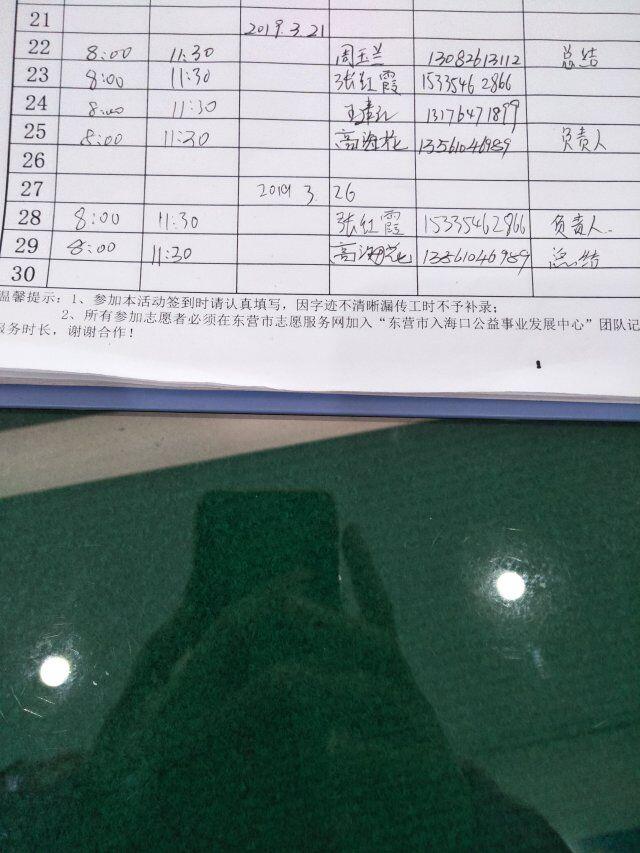 21 2019.3.21
22 8:00 11:30 周玉兰 13082613112 总结
23 8:00 11:30 张红霞 15335462866
24 8:00 11:30 13176471899
25 8:00 11:30 高海花 13561046989 负责人
26
27 2019 3. 26
28 8:00 11:30 张红霞 15335462866 负责人.
29 8:00 11:30 高海花 13561046989 总结
30
温馨提示：1、参加本活动签到时请认真填写，因字迹不清晰漏传工时不予补录；
2、所有参加志愿者必须在东营市志愿服务网加入“东营市入海口公益事业发展中心”团队记
服务时长，谢谢合作！